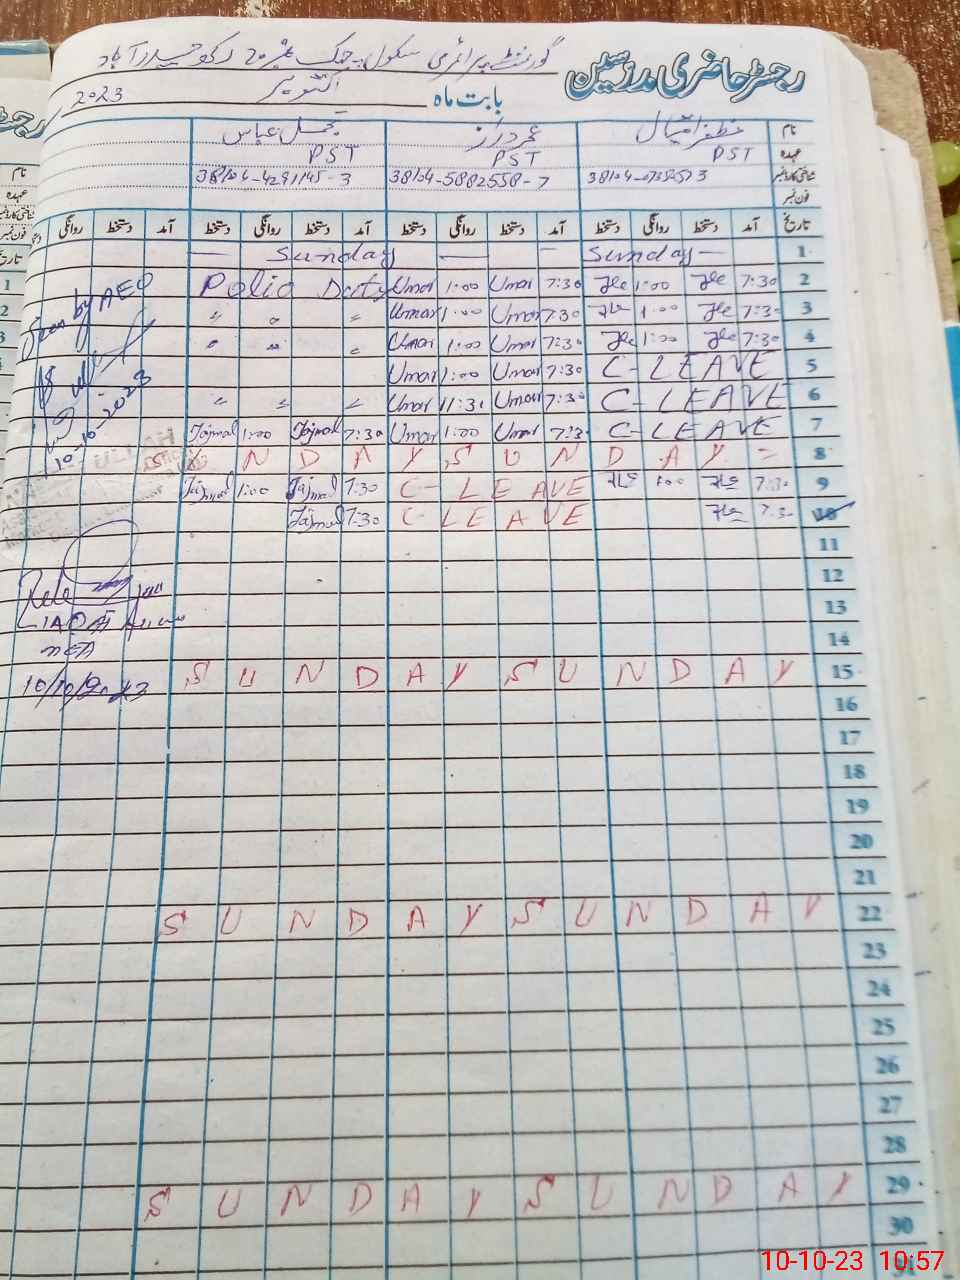 رجسٹر حاضری مدرسین
گورنمنٹ پرائمری سکول چک نمبر 20 رکھ حیدرآباد
بابت ماہ اکتوبر 2023
نام مظفر اقبال عمر دراز تجمل عباس
عہدہ PST PST PST
شناختی کارڈ نمبر 38104-5882558-7 38104-4291145-3
فون نمبر
تاریخ آمد دستخط روانگی دستخط آمد دستخط روانگی دستخط آمد دستخط روانگی دستخط آمد دستخط روانگی
— Sunday — — Sunday — 1
Polio Duty Umar 1:00 Umar 7:30 1:00 7:30 2
" " " Umar 1:00 Umar 7:30 1:00 7:30 3
" " " Umar 1:00 Umar 7:30 1:00 7:30 4
Umar 1:00 Umar 7:30 C-LEAVE 5
" " " Umar 11:30 Umar 7:30 C-LEAVE 6
Tajmal 1:00 Tajmal 7:30 Umar 1:00 Umar 7:30 C-LEAVE 7
U N D A Y S U N D A Y 8
Tajmal 1:00 Tajmal 7:30 C-LEAVE 1:00 7:30 9
Tajmal 7:30 C-LEAVE 7:30 10
11
12
13
14
S U N D A Y S U N D A Y 15
16
17
18
19
20
21
S U N D A Y S U N D A Y 22
23
24
25
26
27
28
S U N D A Y S U N D A Y 29
30
Seen by AEO
10-10-2023
LIAQAT
MEA
10/10/2023
1
2
3
4
10-10-23 10:57